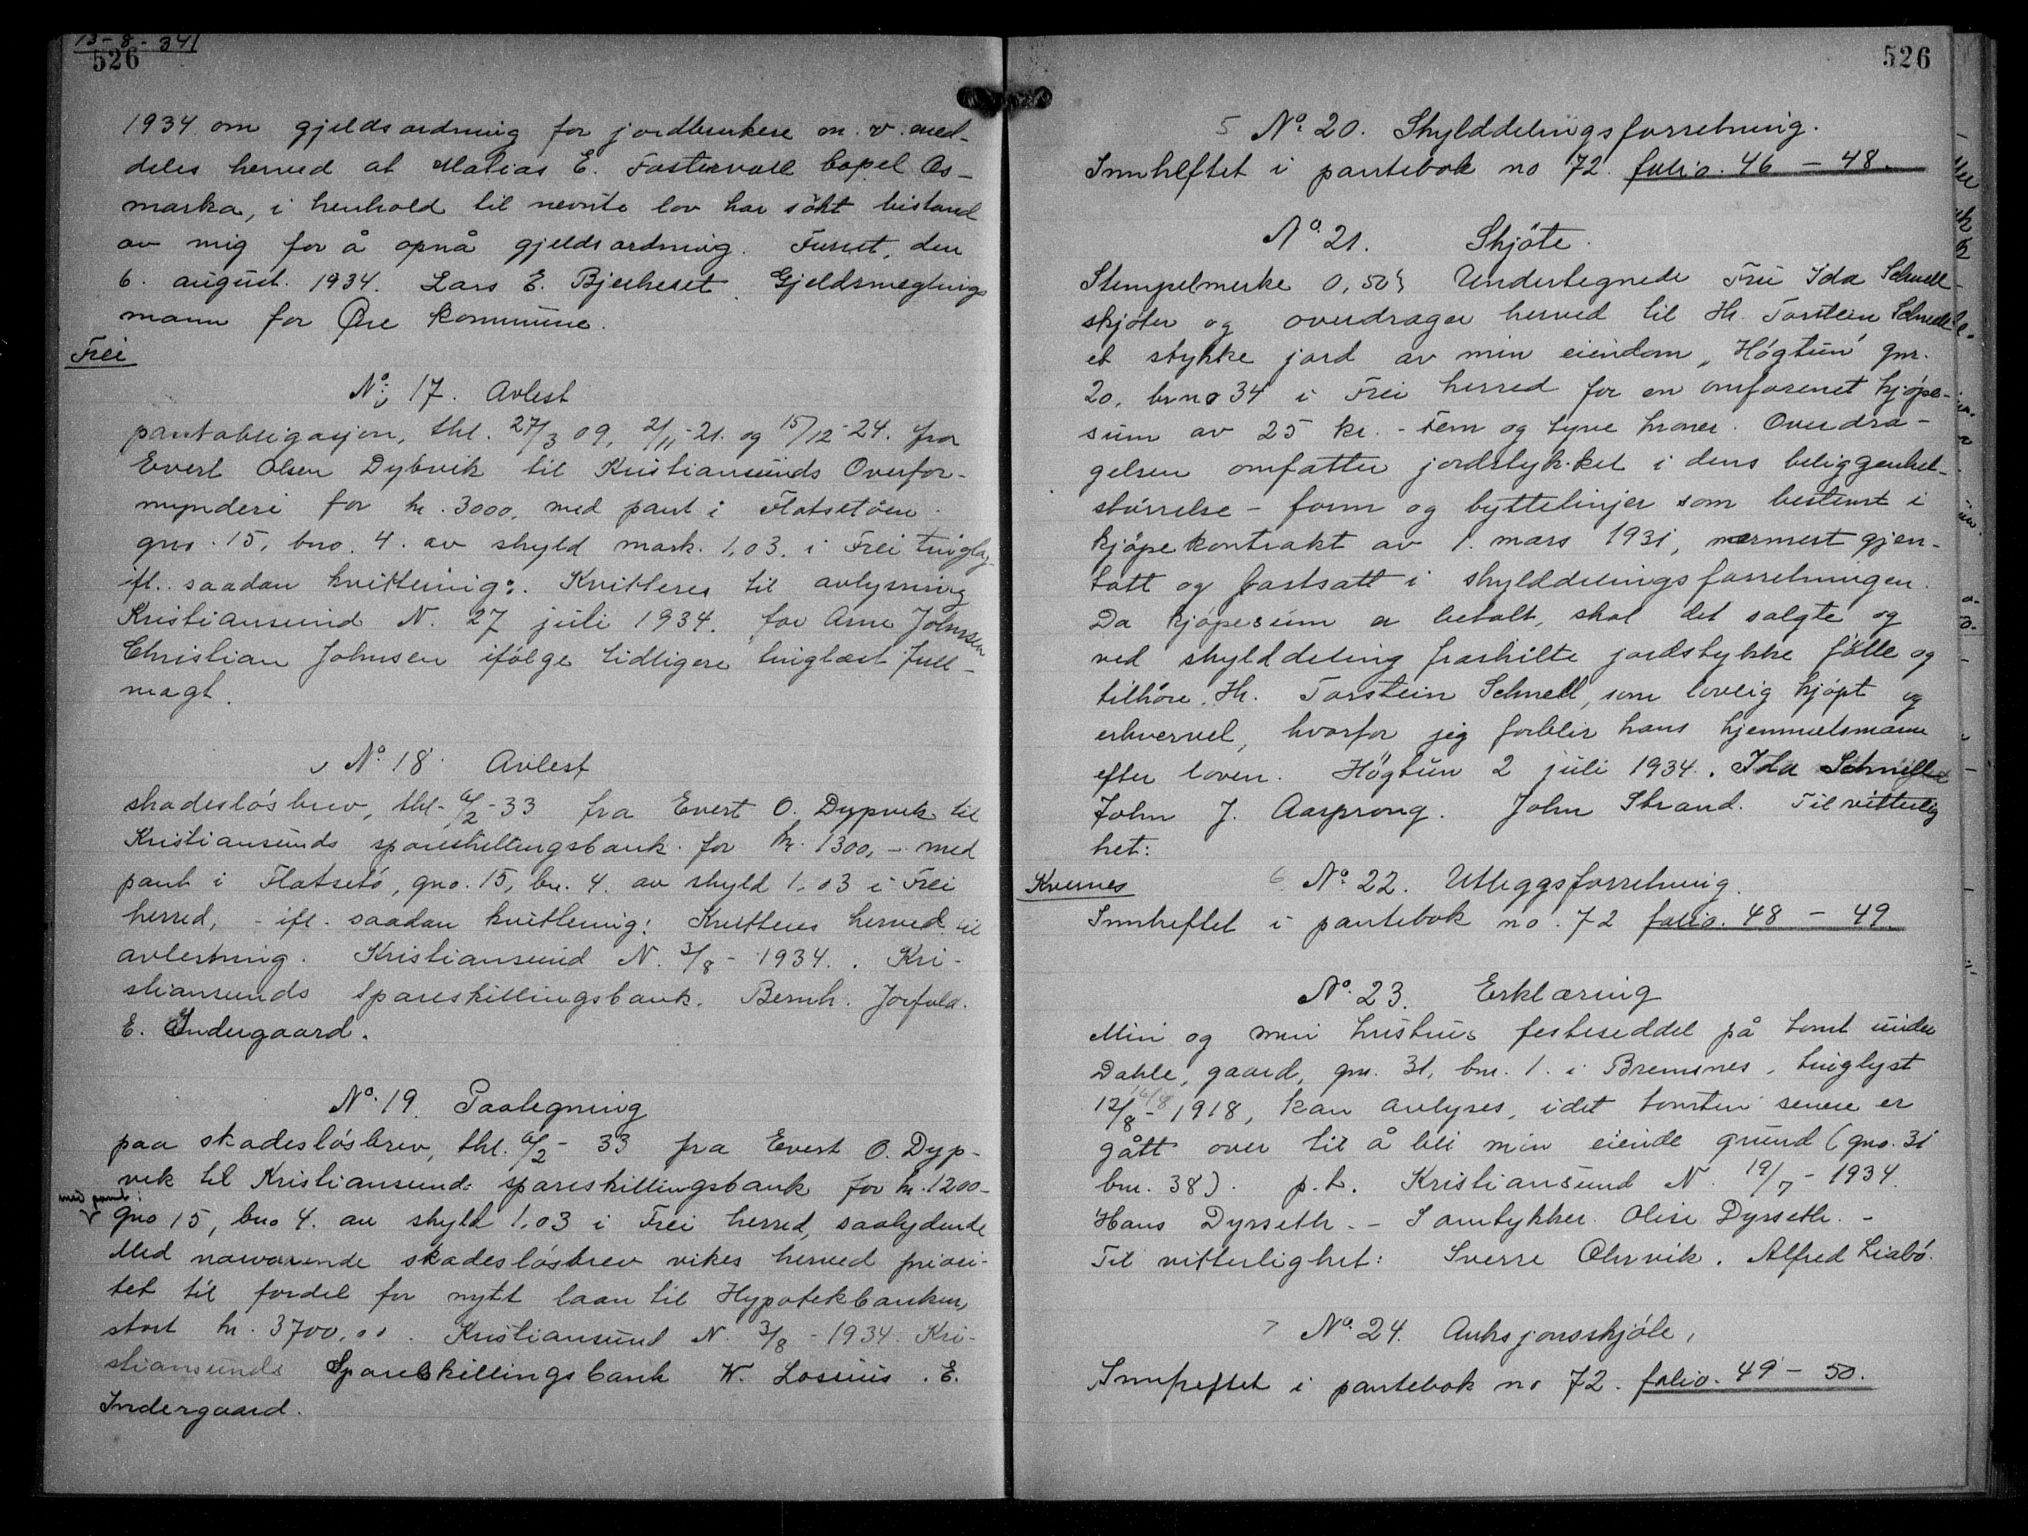 13-8-34
526
1934 om gjeldsordning for jordbrukere m. v. med-
deles herved at Matias E. Fostervoll Copel As-
marka, i henhold til nevnte lov har søkt bistand
av mig for å opnå gjeldsordning. Furset, den
6. august. 1934. Lars E. Bjerkeset. Gjeldsmeglings
mann for Øre kommune.
Frei
No. 17. Avlest
pantobligasjon, thl. 27/3 09, 2/11-21. og 15/12-24. fra
Evert Olsen Dybvik til Kristiansunds Overfor-
mynderi for kr. 3000, med pant i Flatsetøen
gno. 15, bno. 4. av skyld mark. 1,03. i Frei tinglag
ifl. saadan kvittering:. Kvitteres til avlysning
Kristiansund N. 27 juli 1934. for Arne Johnsen
Christian Johnsen ifølge tidligere tinglæst full-
magt.
No. 18. Avlest
skadesløsbrev, thl. 6/2-33 fra Evert O. Dypvik til
Kristiansunds spareskillingsbank for kr. 1300,- med
pant i Flatsetø, gno. 15, bn. 4. av skyld 1,03 i Frei
herred, - ifl. saadan kvittering: Kvitteres herved til
avlesning. Kristiansund N. 3/8 - 1934. Kri-
stiansunds Spareskillingsbank. Bernh. Jorfald.
E. Indergaard.
No. 19. Paategning
paa skadesløsbrev, thl. 6/2- 33 fra Evert O. Dyp-
vik til Kristiansunds spareskillingsbank for kr. 1200-
med pant i
gno 15, bno 4. av skyld 1,03 i Frei herred, saalydende
Med nærværende skadesløsbrev vikes herved priori-
tet til fordel for nytt laan til Hypotekbanken,
stort kr. 3700,00. Kristiansund N. 3/8 - 1934. Kri-
stiansunds Spareskillingsbank W. Lossius. E.
Indergaard.
526
5 No. 20. Skylddelingsforretning.
Innheftet i pantebok no 72. folio. 46 - 48.
No. 21. Skjøte.
Stempelmerke 0,50. Undertegnede Fru Ida Schnell
skjøter og overdrager herved til Hr. Torstein Schnell
et stykke jord av min eiendom "Høgtun" gnr.
20, brno 34 i Frei herred for en omforenet kjøpe-
sum av 25 kr. - fem og tyve kroner. Overdra-
gelsen omfatter jordstykket i dens beliggenhet-
størrelse - form og byttelinjer som bestemt i
kjøpekontrakt av 1. mars 1931, nærmest gjen-
tatt og fastsatt i skylddelingsforretningen.
Da kjøpesum er betalt, skal det solgte og
ved skylddeling fraskilte jordstykke følle og
tilhøre Hr. Torstein Schnell, som lovlig kjøpt og
erhvervet, hvorfor jeg forblir hans hjemmelsmann
efter loven. Høgtun 2 juli 1934. Ida Schnell
John J. Aasprong. John Strand. Til vitterlig
het:
Kvernes
6. No. 22. Utleggsforretning.
Innheftet i pantebok no. 72 folio. 48 - 49.
No. 23. Erklæring
Min og min hustrus festeseddel på tomt under
Dahle, gaard, gnr. 31, bnr. 1. i Bremsnes, tinglyst
12/8 - 1918, kan avlyses, idet tomten senere er
gått over til å bli min eiende grund (gno. 31
bnr. 38). p.t. Kristiansund N. 19/7 - 1934.
Hans Dyrseth. - Samtykker. Olise Dyrseth. -
Til vitterlighet: Sverre Ohrvik. Alfred Liabø.
7 No. 24. Auksjonsskjøte,
Innheftet i pantebok no 72. folio. 49 - 50.